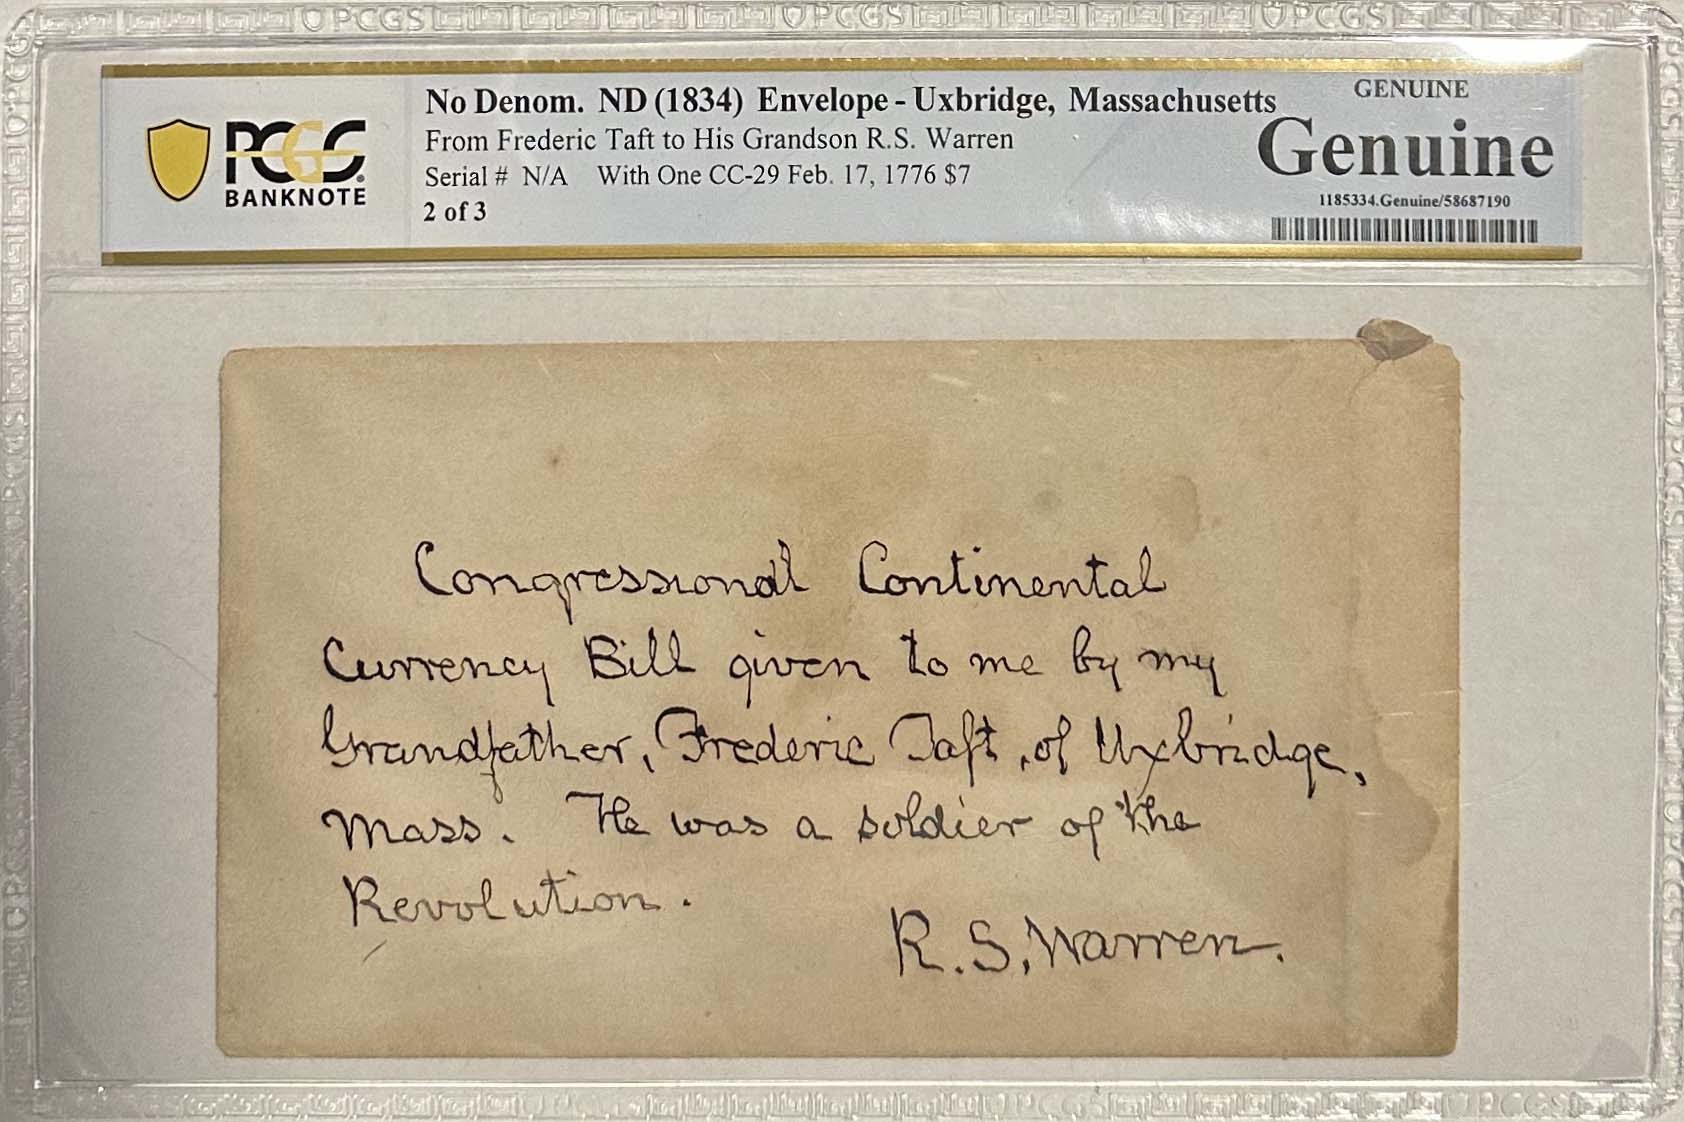 PCGS PCGS PCGS
PCGS BANKNOTE
No Denom. ND (1834) Envelope - Uxbridge, Massachusetts
From Frederic Taft to His Grandson R.S. Warren
Serial # N/A With One CC-29 Feb. 17, 1776 $7
2 of 3
GENUINE
Genuine
1185334.Genuine/58687190
Congressional Continental
Currency Bill given to me by my
Grandfather, Frederic Taft, of Uxbridge,
Mass. He was a soldier of the
Revolution.
R. S. Warren.